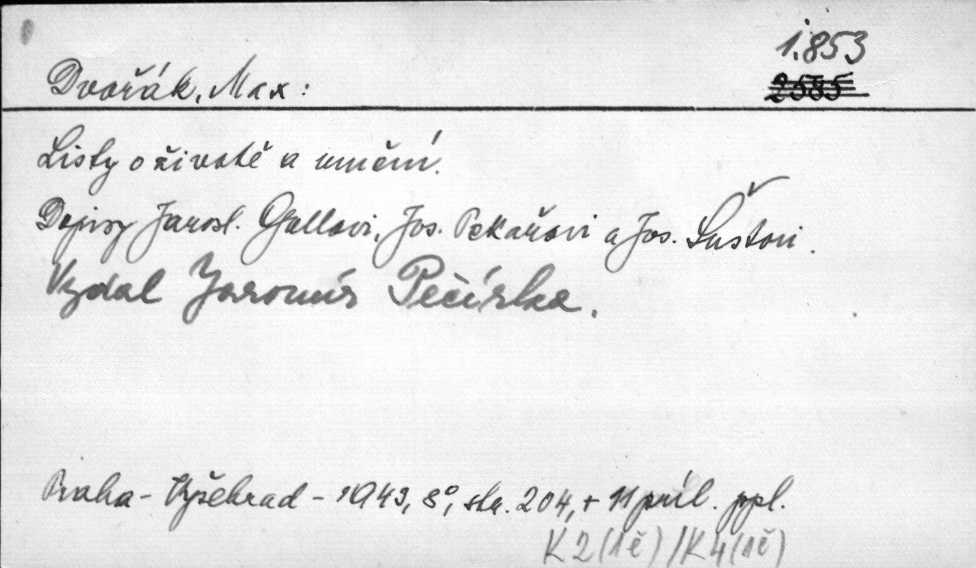 1.853
Dvořák, Max:
2585
Listy o životě a umění.
Dopisy Jarosl. Gollovi, Jos. Pekařovi a Jos. Šustovi.
Vydal Jaromír Pečírka.
Praha - Vyšehrad - 1943, 8°, str. 204, + 11 příl. ppl.
K2(1č)/K4(1č)